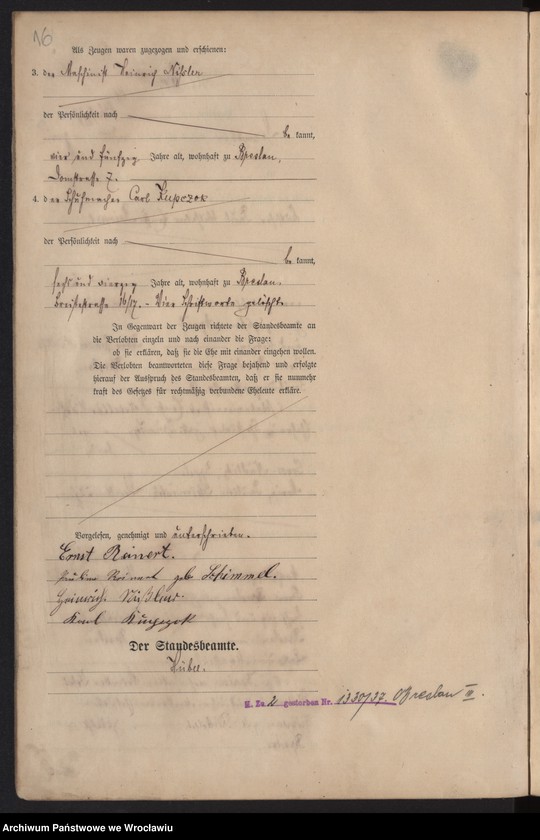 16
Als Zeugen waren zugezogen und erschienen:
3. der Maschinist Heinrich
der Persönlichkeit nach
be kannt,
vier und fünfzig Jahre alt, wohnhaft zu Breslau,
Domstraße 7.
4. der Schuhmacher Carl Kupczok
der Persönlichkeit nach
be kannt,
sechs und vierzig Jahre alt, wohnhaft zu Breslau,
Breitestraße 16/17. – Vier Druckworte gelöscht.
In Gegenwart der Zeugen richtete der Standesbeamte an
die Verlobten einzeln und nach einander die Frage:
ob sie erklären, daß sie die Ehe mit einander eingehen wollen.
Die Verlobten beantworteten diese Frage bejahend und erfolgte
hierauf der Ausspruch des Standesbeamten, daß er sie nunmehr
kraft des Gesetzes für rechtmäßig verbundene Eheleute erkläre.
Vorgelesen, genehmigt und unterschrieben.
Ernst Reinert.
Pauline Reinert geb Schimmel.
Heinrich
Karl
Der Standesbeamte.
Hübe.
H. Zu 2 gestorben Nr. 1330/37 Breslau III.
Archiwum Państwowe we Wrocławiu